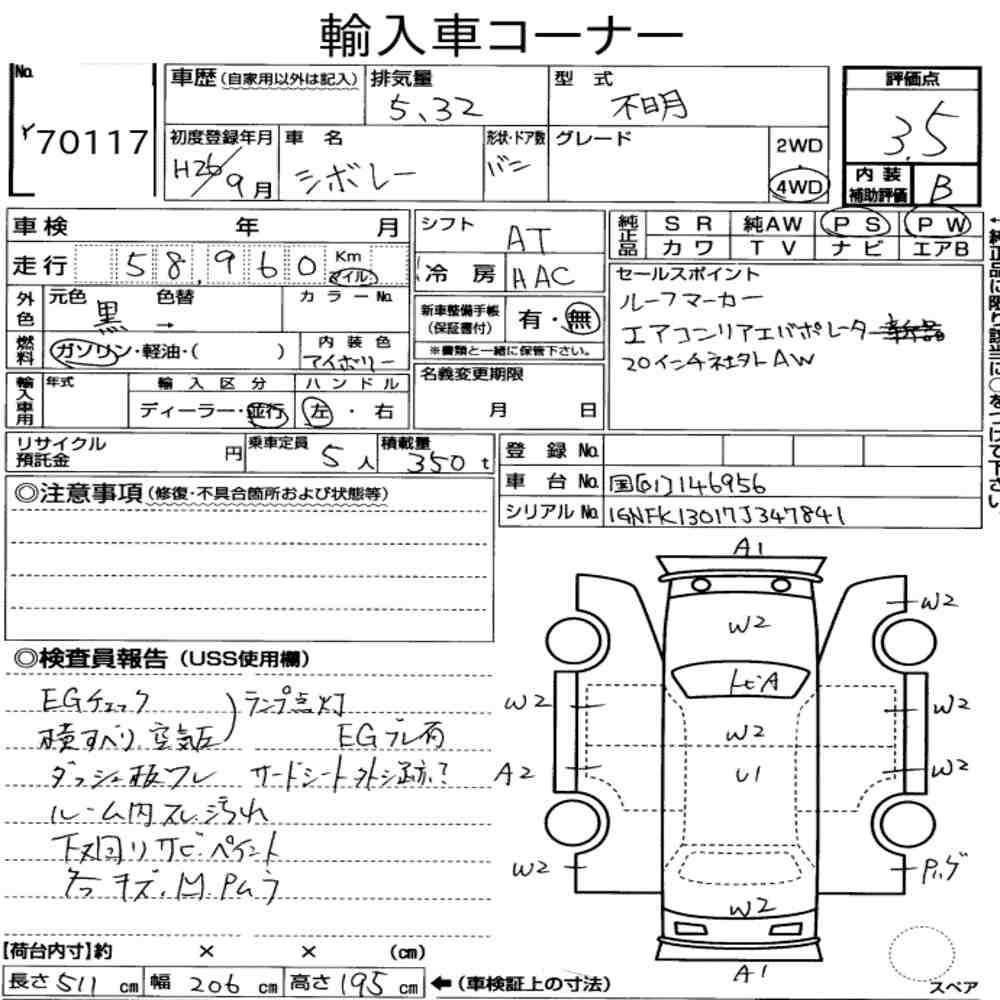 輸入車コーナー
No.
Y70117
車歴(自家用以外は記入)
排気量
5.32
型式
不明
評価点
3.5
初度登録年月
H26/9月
車名
シボレー
形状・ドア数
バン
グレード
2WD
4WD
内装
補助評価
B
車検 年 月
シフト
AT
純正品
SR 純AW PS PW
カワ TV ナビ エアB
走行
58,960
Km
マイル
冷房
AAC
セールスポイント
ルーフマーカー
エアコンリアエバポレーター新品
20インチ社外AW
外色
元色
黒
色替
→
カラーNo.
新車整備手帳
(保証書付)
有・無
※書類と一緒に保管下さい。
燃料
ガソリン・軽油・( )
内装色
アイボリー
名義変更期限
月 日
輸入車用
年式
輸入区分
ディーラー・並行
ハンドル
左・右
←純正品に限り該当に○をつけて下さい。
リサイクル
預託金
円
乗車定員
5人
積載量
350t
登録No.
車台No.
国[01]146956
シリアルNo.
1GNFK13017J347841
◎注意事項(修復・不具合箇所および状態等)
◎検査員報告(USS使用欄)
EGチェック
横すべり.空気圧
ランプ点灯
EGブレ有
ダッシュ板ワレ サードシート外シ跡?
ルーム内スレ.汚れ
下回りサビ.ペイント
キズ.M.Pムラ
A1
W2
W2
トビA
W2
W2
W2
W2
A2
U1
W2
W2
P.ゲ
W2
A1
スペア
【荷台内寸】約 × × (cm)
長さ511cm 幅206cm 高さ195cm ←(車検証上の寸法)